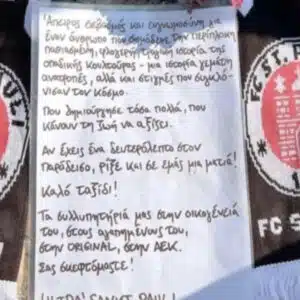 Άπειρος σεβασμός και ευγνωμοσύνη για
έναν άνθρωπο που σημάδεψε την περίπλοκη
παθιασμένη, φλογερή τραγική ιστορία της
οπαδικής κουλτούρας - μια ιστορία γεμάτη
ανατροπές, αλλά και στιγμές που συγκλό-
νισαν τον κόσμο.
Που δημιούργησε τόσα πολλά, που
κάνουν τη ζωή να αξίζει.
Αν έχεις ένα δευτερόλεπτο στον
παράδεισο, ρίξε και σε εμάς μια ματιά!
Καλό ταξίδι!
Τα συλλυπητήριά μας στην οικογένειά
του, στους αγαπημένους του,
στην ORIGINAL, στην ΑΕΚ.
Σας σκεφτόμαστε!
ULTRA' SANKT PAULI
FC S
F.C. ST.